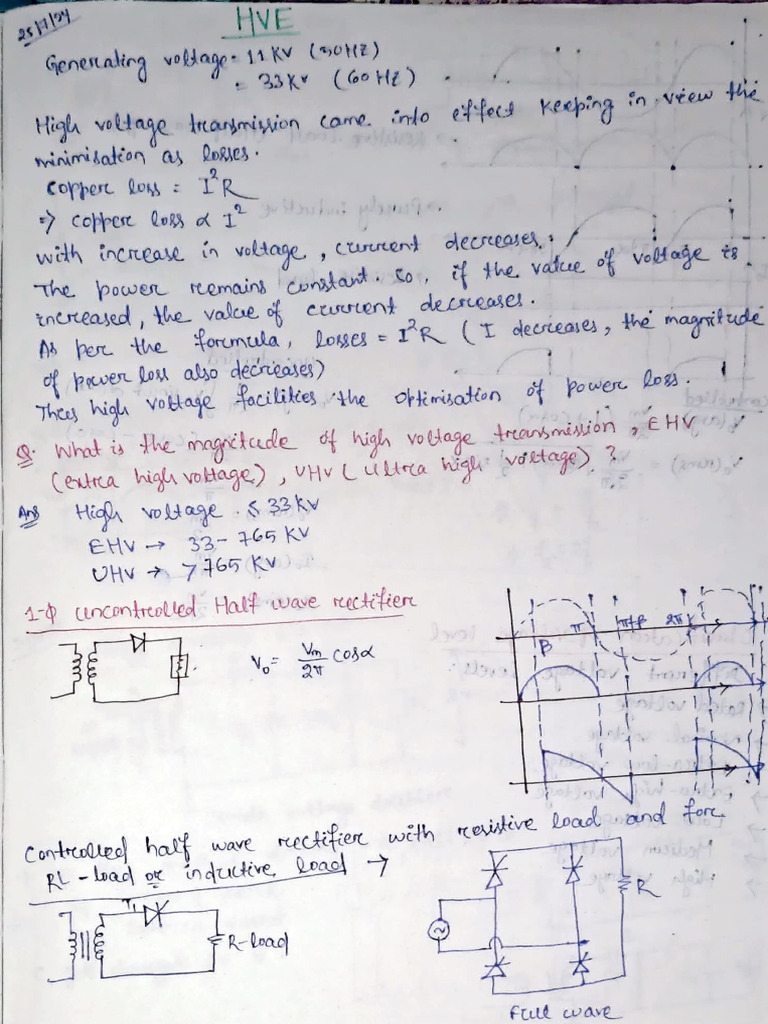 25/7/24
HVE
Generating voltage = 11 KV (50Hz)
= 33 KV (60 Hz)
High voltage transmission came into effect keeping in view the
minimisation as losses.
copper loss = I²R
⇒ copper loss ∝ I²
with increase in voltage, current decreases.
The power remains constant. So, if the value of voltage is
increased, the value of current decreases.
As per the formula, losses = I²R ( I decreases, the magnitude
of power loss also decreases)
Thus high voltage facilities the optimisation of power loss.
Q. What is the magnitude of high voltage transmission, EHV
(extra high voltage), UHV (Ultra high voltage) ?
Ans High voltage ≤ 33 KV
EHV → 33 - 765 KV
UHV → > 765 KV
1-Φ uncontrolled Half wave rectifier
V₀ = Vm/2π cosα
β π π+β 2π
Controlled half wave rectifier with resistive load and for
RL-load or inductive load →
T₁
R-load
R
Full wave